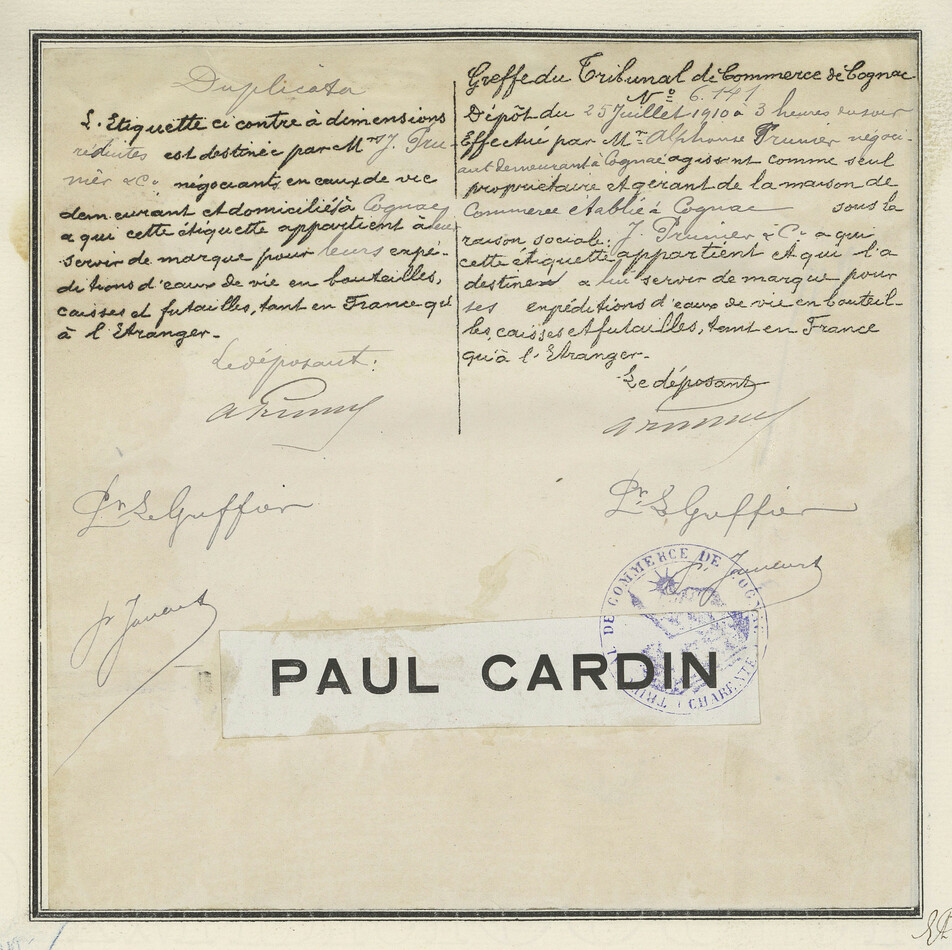 Duplicata
L'Etiquette ci contre à dimensions
réduites est destinée par Mrs J. Pru-
nier & Co. négociants en eaux de vie
demeurant et domiciliés à Cognac
a qui cette étiquette appartient à leur
servir de marque pour leurs expé-
ditions d'eaux de vie en bouteilles,
caisses et futailles, tant en France qu'
à l'Etranger.
Le déposant:
A Prunier
Pr Le Greffier
Greffe du Tribunal de Commerce de Cognac
No 6.141
Dépôt du 25 Juillet 1910 à 3 heures du soir
Effectué par Mr Alphonse Prunier négoci-
ant demeurant à Cognac agissant comme seul
propriétaire et gérant de la maison de
Commerce etablie à Cognac sous la
raison sociale: J. Prunier & Co. a qui
cette étiquette appartient et qui l'a
destine a lui servir de marque pour
ses expéditions d'eaux de vie en bouteil-
les, caisses et futailles, tant en France
qu'à l'Etranger.
Le déposant
A Prunier
Pr Le Greffier
TRIB. DE COMMERCE DE COGNAC
(CHARENTE)
PAUL CARDIN